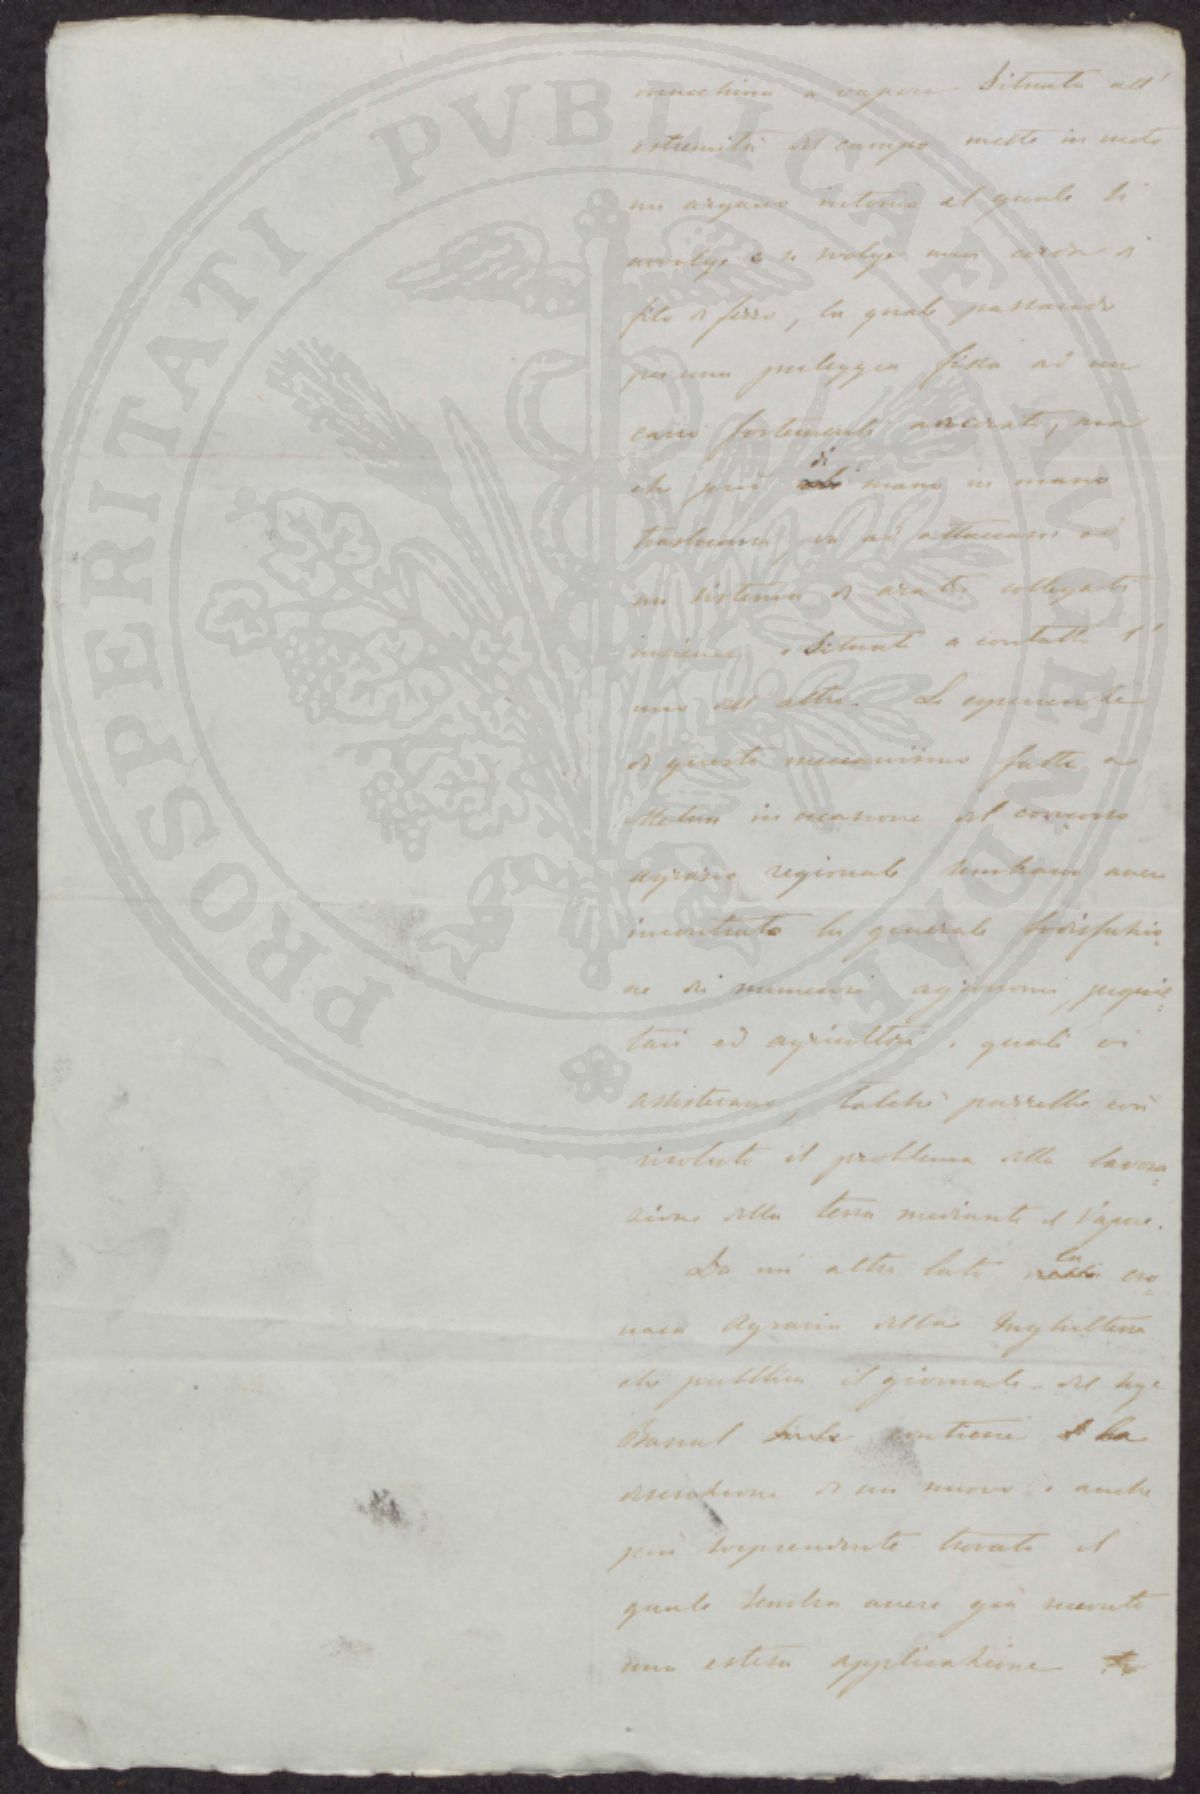 macchina a vapore situata all'
estremità del campo mette in moto
un argano intorno al quale si
avvolge e si svolge una corda di
filo di ferro, la quale passando
per una puleggia fissa ad un
carro fortemente ancorato, ma
che può di mano in mano
traslocarsi, va ad attaccarsi ad
un sistema di aratri collegati
insieme e situati a contatto l'
uno dell'altro. Le esperienze
di questo meccanismo fatte a
Melun in occasione del concorso
agrario regionale sembrano aver
incontrato la generale sodisfazio=
ne di numerosi agronomi, proprie=
tari ed agricoltori i quali vi
assistevano, talché parrebbe così
risoluto il problema della lavora=
zione della terra mediante il Vapore.
Da un altro lato la cro=
naca Agraria della Inghilterra
che pubblica il giornale del
Barral contiene la
descrizione di un nuovo e anche
più sorprendente trovato il
quale sembra avere già ricevuto
una estesa applicazione
PROSPERITATI PVBLICAE AVGENDAE